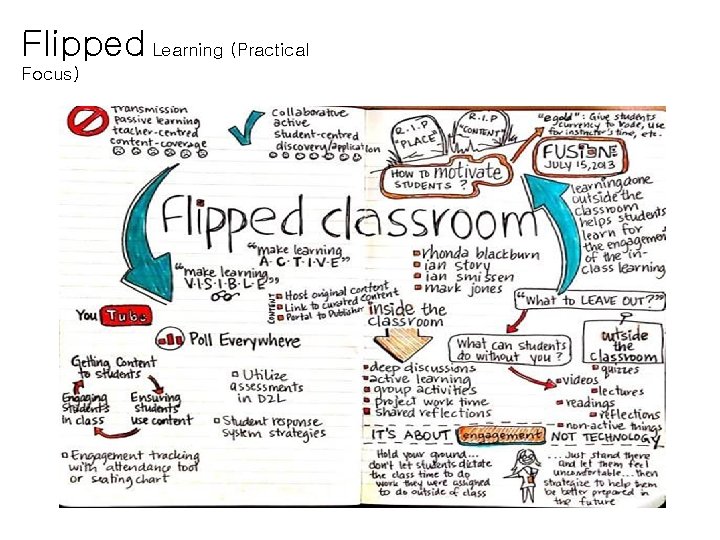 Flipped Learning (Practical
Focus)
Transmission
passive learning
teacher-centred
content-coverage
Collaborative
active
student-centred
discovery/application
R.I.P
"PLACE"
R.I.P
"CONTENT"
HOW TO motivate
STUDENTS?
"egold": Give students
currency to trade, use
for instructor's time, etc.
FUSION!
JULY 15, 2013
learning done
outside the
classroom
helps students
learn for
the engagement
of the in-
class learning
Flipped classroom
"make learning
A·C·T·I·V·E"
"make learning
V·I·S·I·B·L·E"
rhonda blackburn
ian story
ian smissen
mark jones
CONTENT
Host original content
Link to curated content
Portal to Publisher
inside the
classroom
"What to LEAVE OUT?"
What can students
do without you?
outside
the
classroom
You Tube
Poll Everywhere
Getting Content
to students
Engaging
Students
in class
Ensuring
students
use content
Utilize
assessments
in D2L
Student response
system strategies
Engagement tracking
with attendance tool
or seating chart
deep discussions
active learning
group activities
project work time
shared reflections
quizzes
videos
lectures
readings
reflections
non-active things
IT'S ABOUT engagement NOT TECHNOLOGY
Hold your ground...
don't let students dictate
the class time to do
work they were assigned
to do outside of class
...Just stand there
and let them feel
uncomfortable...then
strategize to help them
be better prepared in
the future